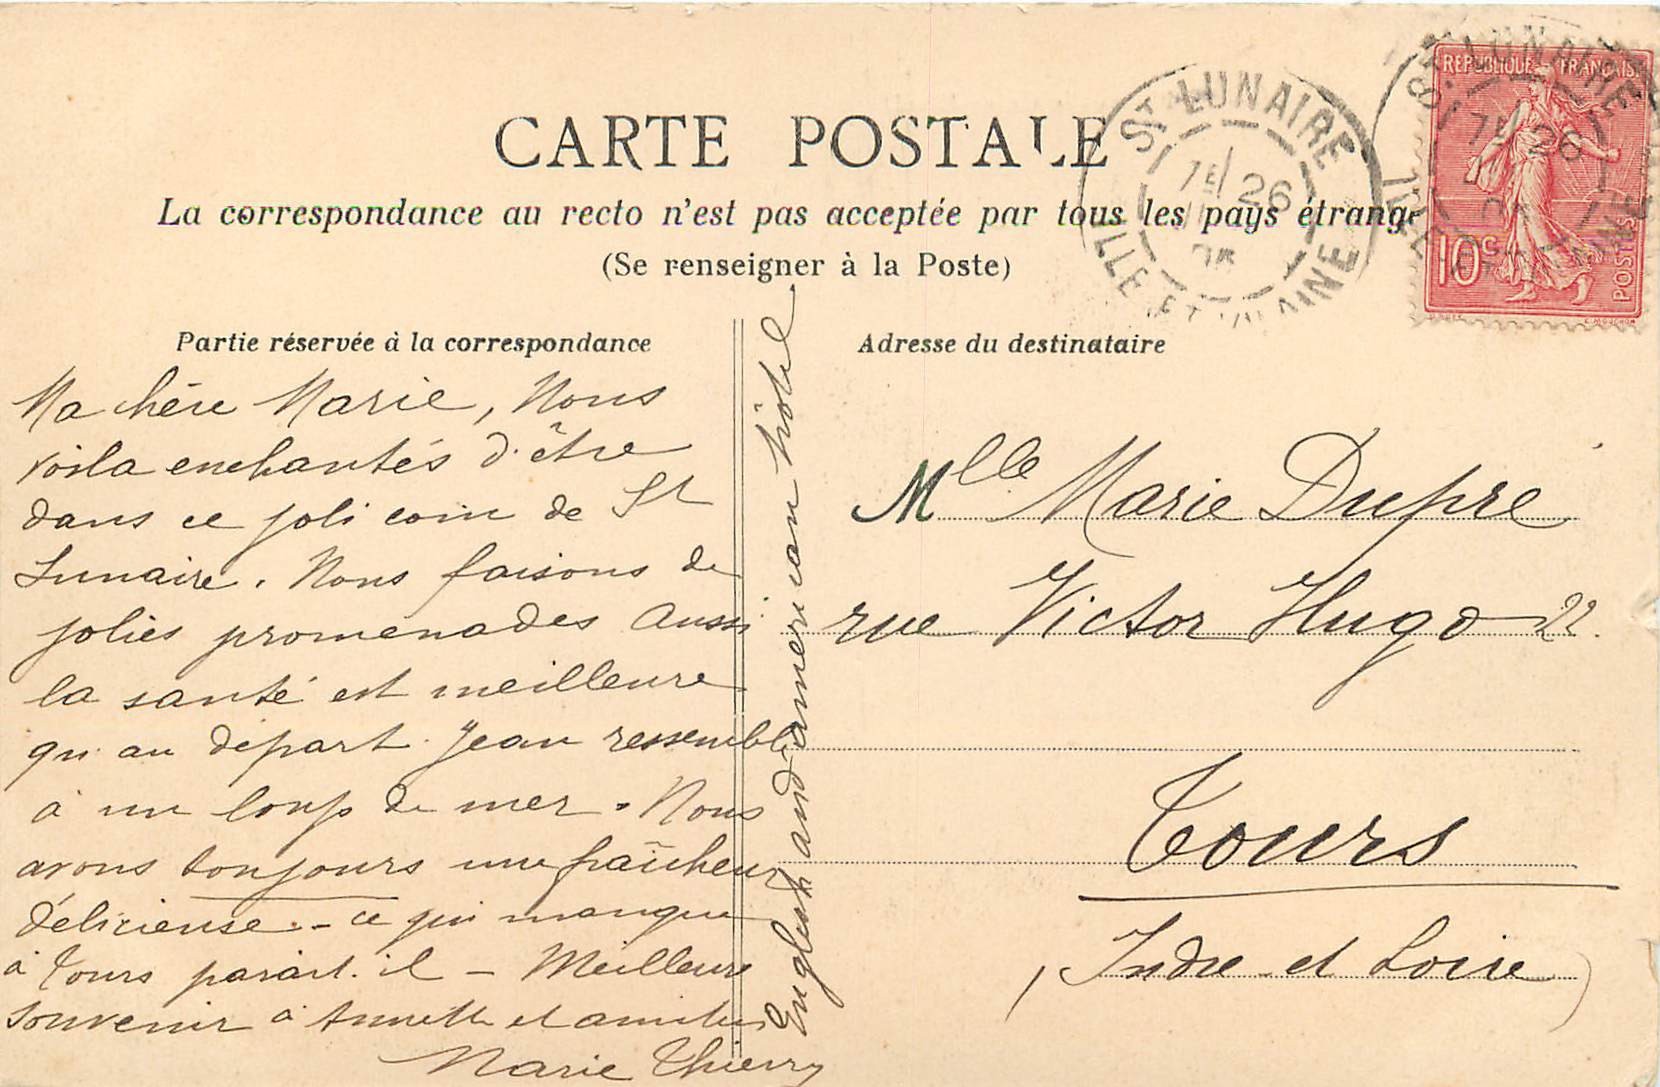 CARTE POSTALE
La correspondance au recto n'est pas acceptée par tous les pays étrang
(Se renseigner à la Poste)
Partie réservée à la correspondance
Ma chère Marie, Nous
voila enchantés d'être
dans ce joli coin de St
Lunaire. Nous faisons de
jolies promenades aussi
la santé est meilleure
qu'au départ. Jean ressemble
à un loup de mer. Nous
avons toujours une fraîcheur
délicieuse - ce qui manque
à Tours parait-il - Meilleurs
souvenir à Annette et amitiés
Marie Thierry
English and american hotel
Adresse du destinataire
Mlle Marie Dupré
rue Victor Hugo 22.
Tours
(Indre et Loire)
ST LUNAIRE
7E 26
ILLE ET VILAINE
REPUBLIQUE FRANÇAISE
10c
POSTES
ST LUNAIRE
7E 26
ILLE ET VILAINE